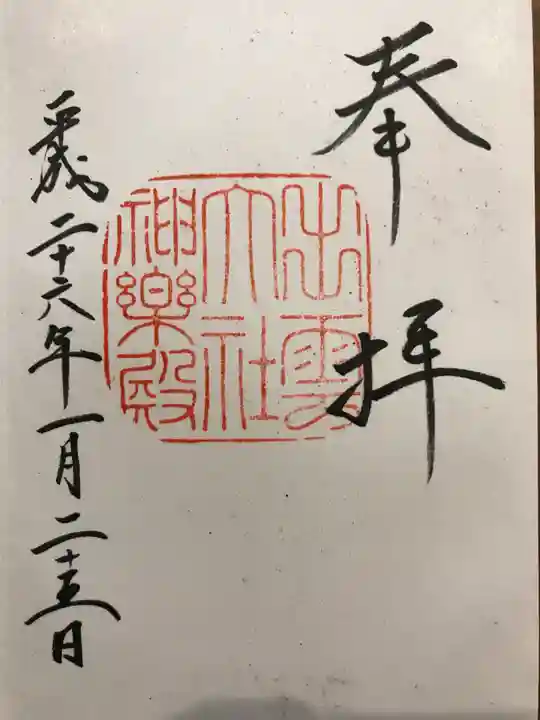 奉拝
出雲
大社
神楽殿
平成二十六年一月二十五日